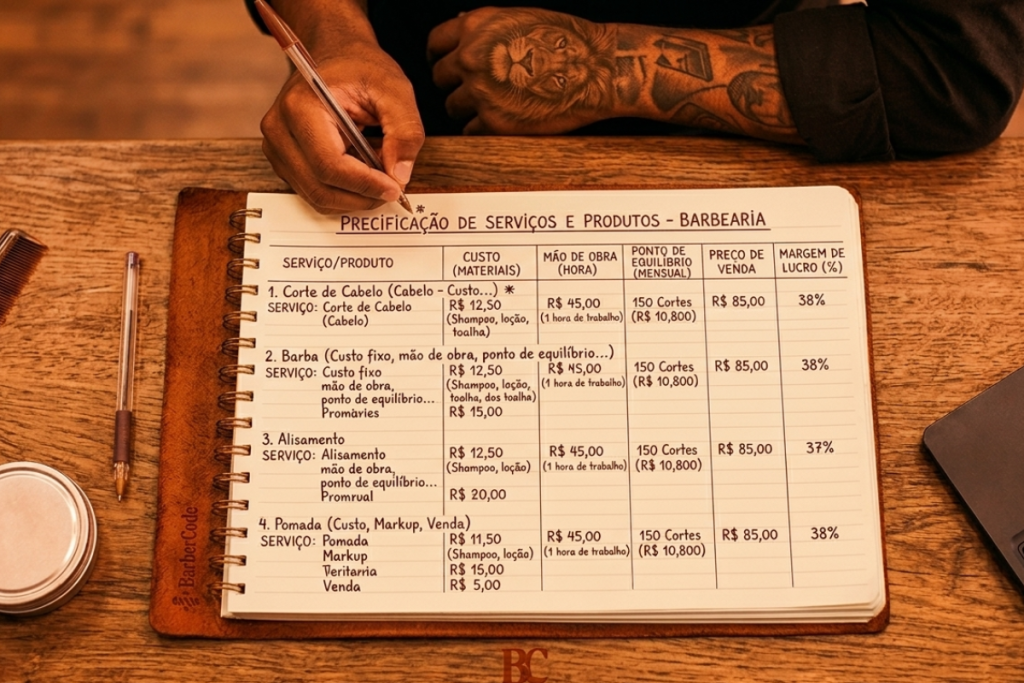 *
PRECIFICAÇÃO DE SERVIÇOS E PRODUTOS – BARBEARIA
SERVIÇO/PRODUTO
CUSTO
(MATERIAIS)
MÃO DE OBRA
(HORA)
PONTO DE
EQUILÍBRIO
(MENSUAL)
PREÇO DE
VENDA
MARGEM DE
LUCRO (%)
1. Corte de Cabelo (Cabelo – Custo...) *
SERVIÇO: Corte de Cabelo
(Cabelo)
R$ 12,50
(Shampoo, loção,
toalha)
R$ 45,00
(1 hora de trabalho)
150 Cortes
(R$ 10,800)
R$ 85,00
38%
2. Barba (Custo fixo, mão de obra, ponto de equilíbrio...)
SERVIÇO: Custo fixo
mão de obra,
ponto de equilíbrio...
Promavies
R$ 12,50
(Shampoo, loção,
toolha, dos toalha)
R$ 15,00
R$ 45,00
(1 hora de trabalho)
150 Cortes
(R$ 10,800)
R$ 85,00
38%
3. Alisamento
SERVIÇO: Alisamento
mão de obra,
ponto de equilíbrio...
Promrual
R$ 12,50
(Shampoo, loção)
R$ 20,00
R$ 45,00
(1 hora de trabalho)
150 Cortes
(R$ 10,800)
R$ 85,00
37%
4. Pomada (Custo, Markup, Venda)
SERVIÇO: Pomada
Markup
Teritarria
Venda
R$ 11,50
(Shampoo, loção)
R$ 15,00
R$ 5,00
R$ 45,00
(1 hora de trabalho)
150 Cortes
(R$ 10,800)
R$ 85,00
38%
BarberCode
BC